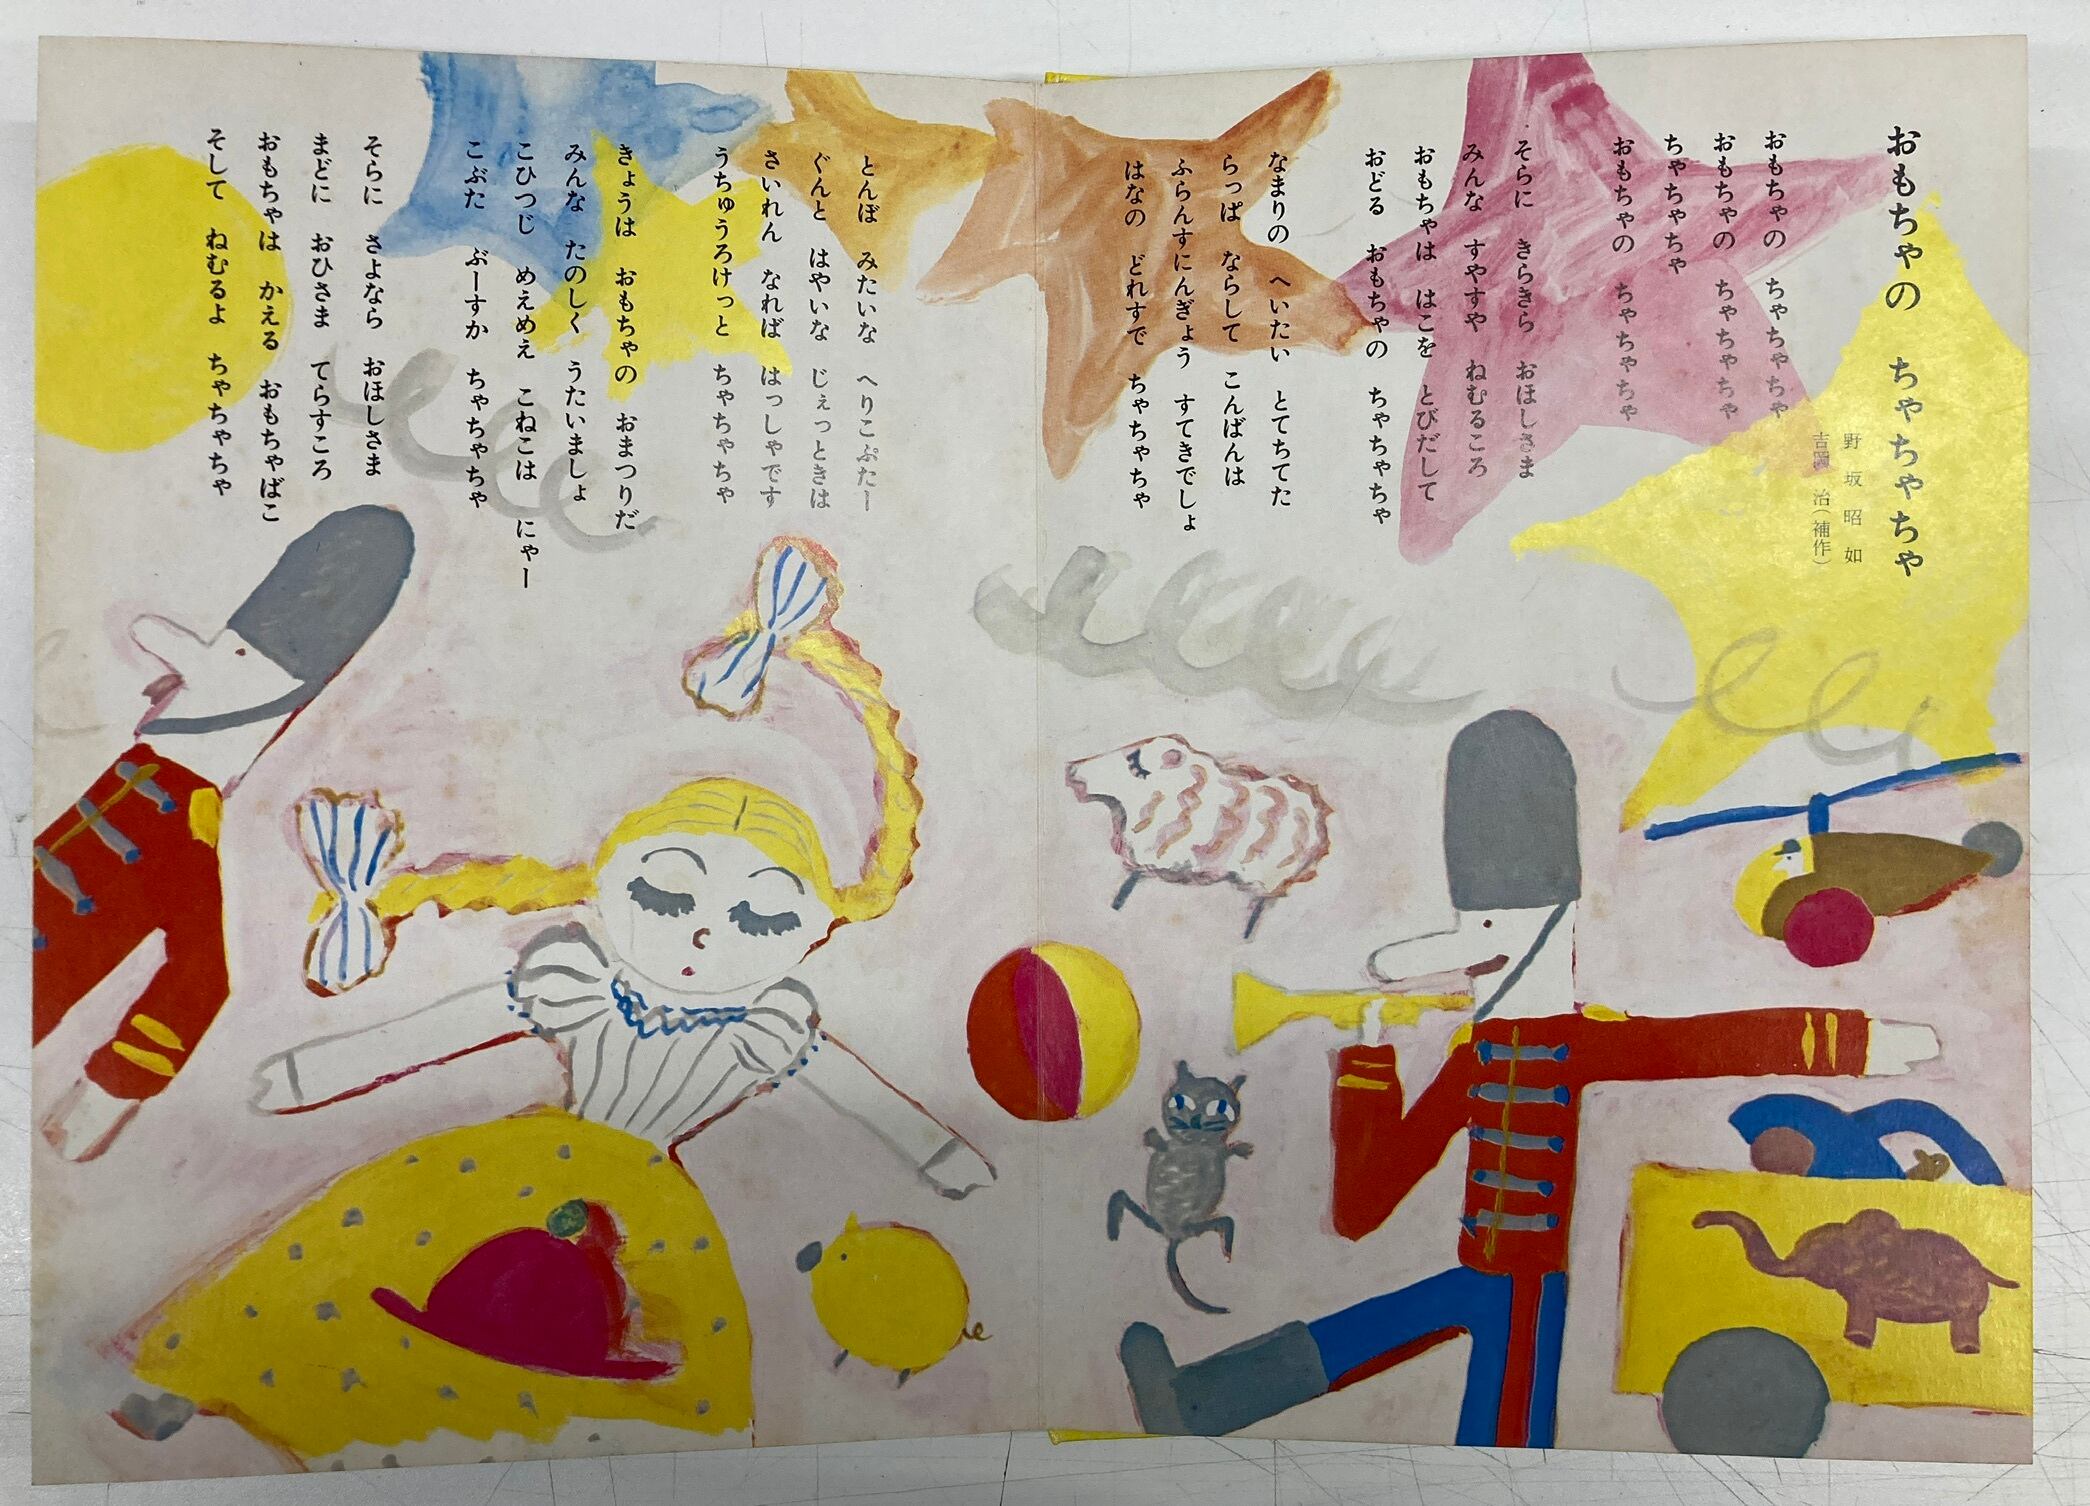 おもちゃの ちゃちゃちゃ
野坂昭如
吉岡 治(補作)
おもちゃの ちゃちゃちゃ
おもちゃの ちゃちゃちゃ
ちゃちゃちゃ
おもちゃの ちゃちゃちゃ
そらに きらきら おほしさま
みんな すやすや ねむるころ
おもちゃは はこを とびだして
おどる おもちゃの ちゃちゃちゃ
なまりの へいたい とてちてた
らっぱ ならして こんばんは
ふらんすにんぎょう すてきでしょ
はなの どれすで ちゃちゃちゃ
とんぼ みたいな へりこぷたー
ぐんと はやいな じぇっときは
さいれん なれば はっしゃです
うちゅうろけっと ちゃちゃちゃ
きょうは おもちゃの おまつりだ
みんな たのしく うたいましょ
こひつじ めえめえ こねこは にゃー
こぶた ぶーすか ちゃちゃちゃ
そらに さよなら おほしさま
まどに おひさま てらすころ
おもちゃは かえる おもちゃばこ
そして ねむるよ ちゃちゃちゃ